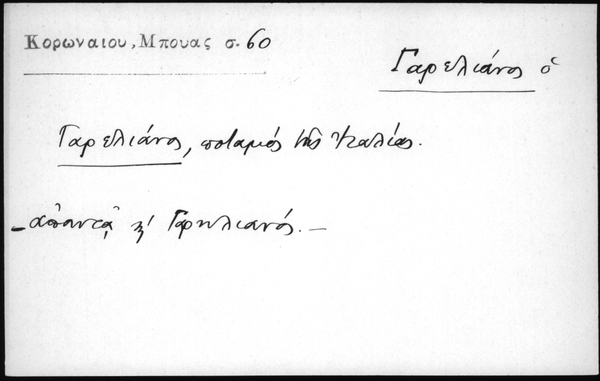 Κορωναιου, Μπουας σ. 60
Γαρελιάνος ὁ
Γαρελιάνος, ποταμός τῆς Ἰταλίας.
– ἀπαντᾷ κ' Γαρηλιανός. –